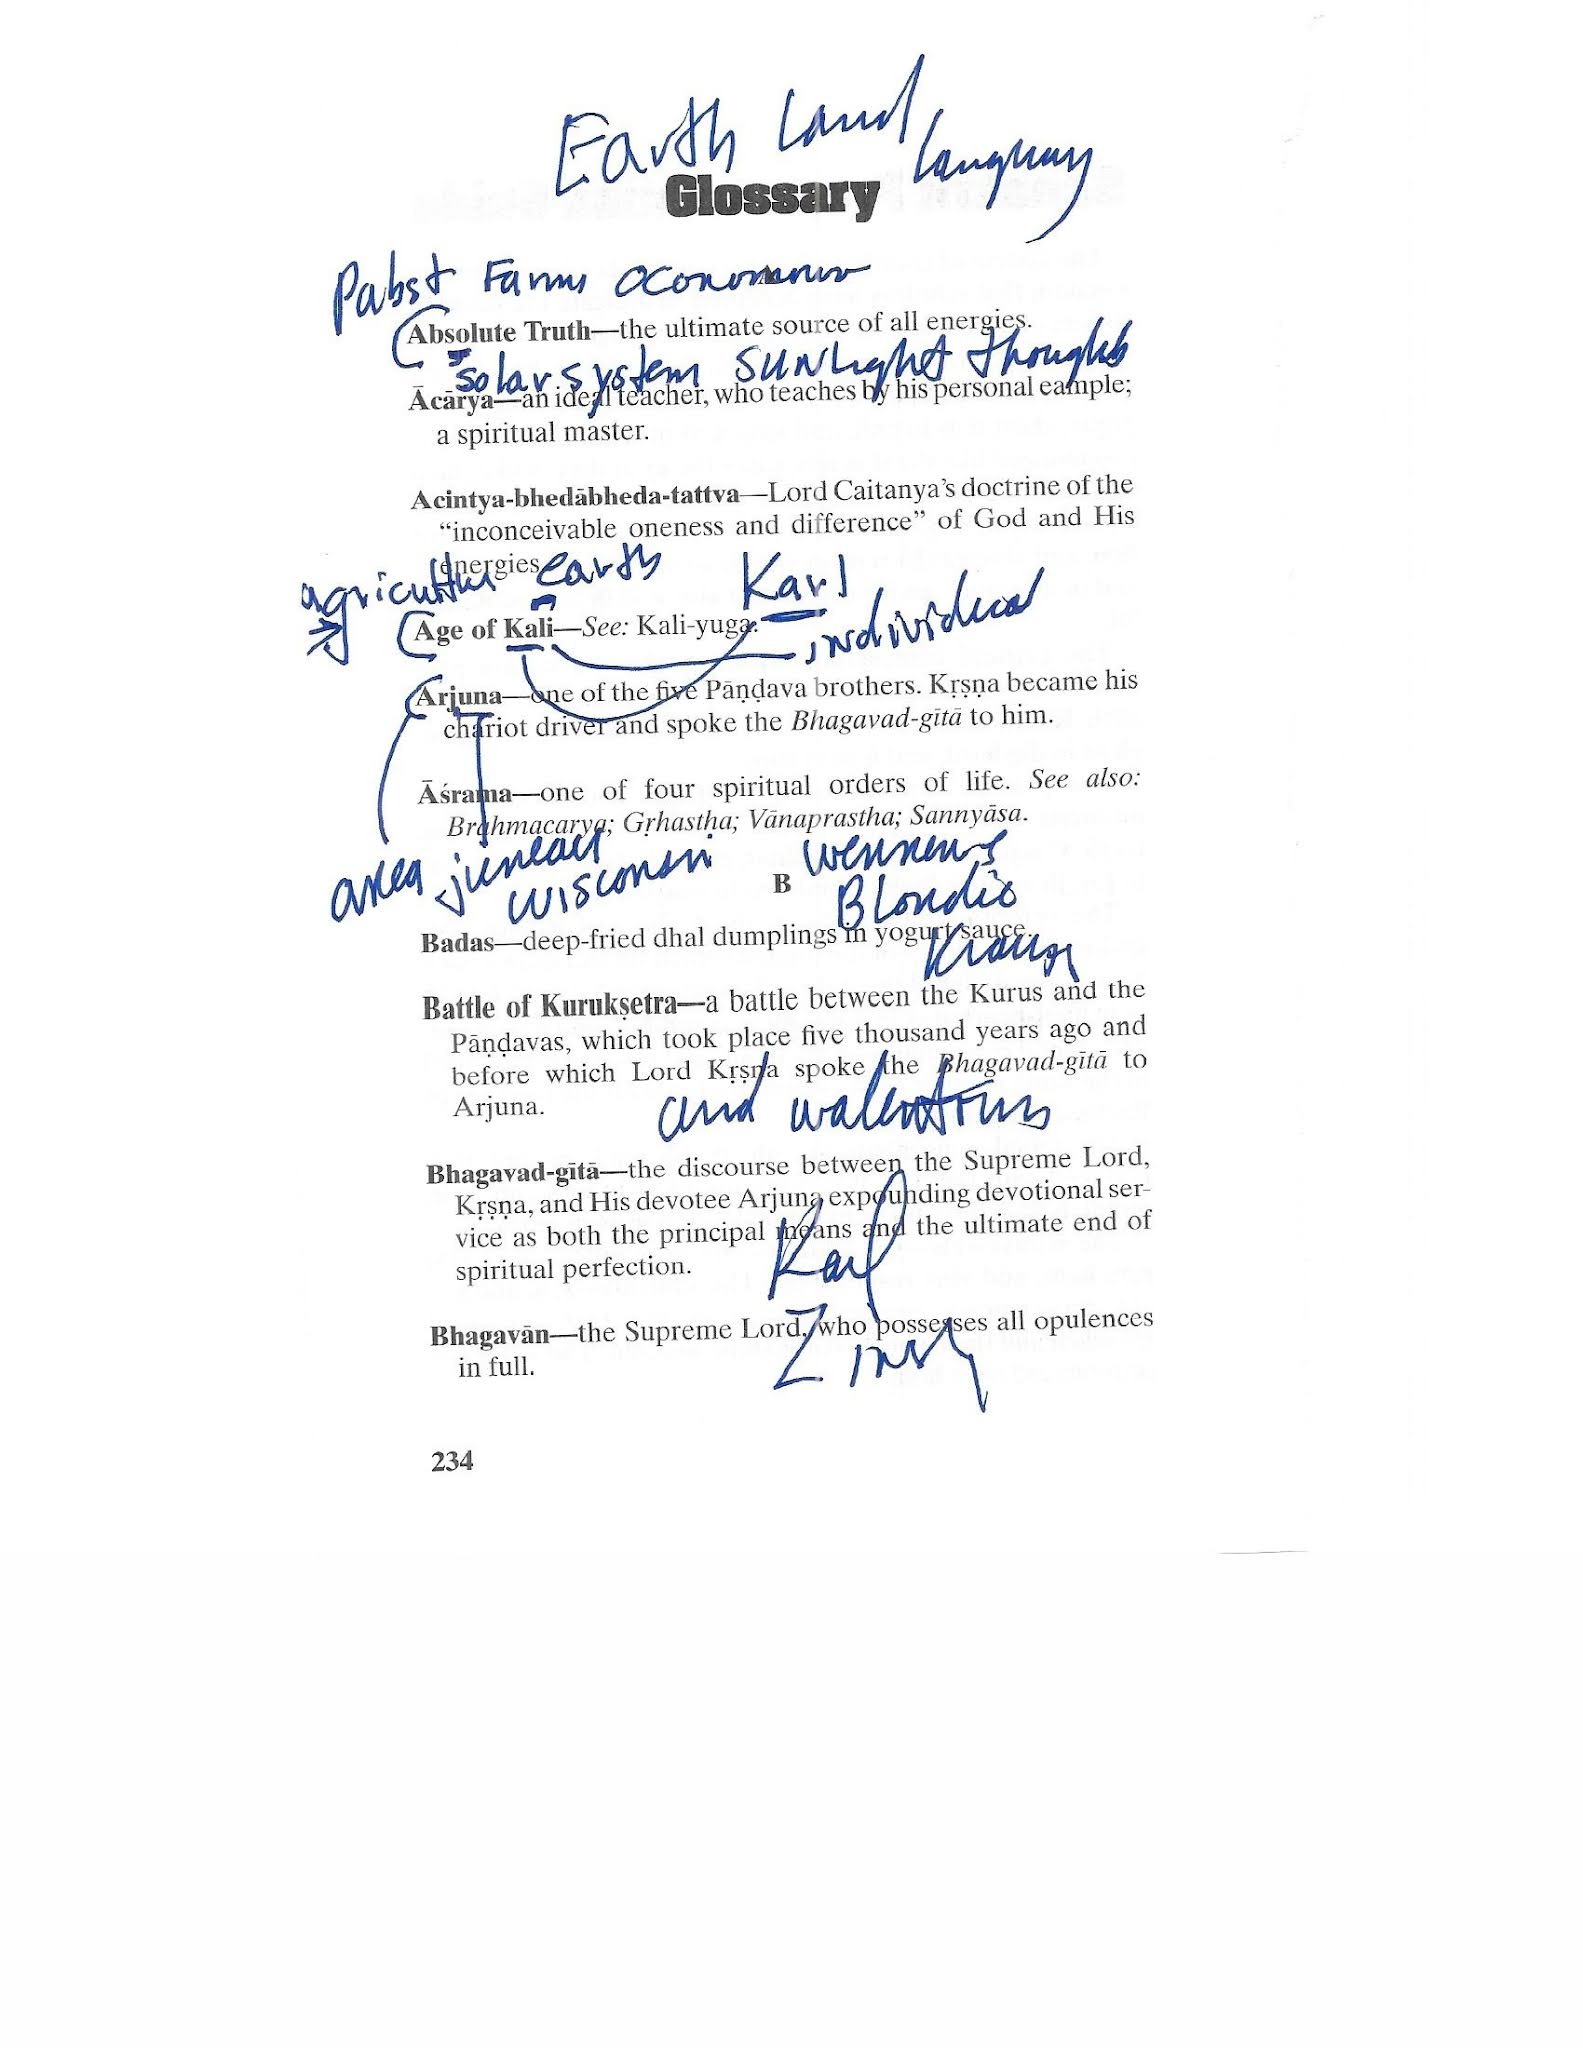 Earth Land
Languag
Glossary
Pabst Farms
Absolute Truth—the ultimate source of all energies.
solar system SUNLight thoughts
Ācārya—an ideal teacher, who teaches by his personal eample;
a spiritual master.
Acintya-bhedābheda-tattva—Lord Caitanya’s doctrine of the
“inconceivable oneness and difference” of God and His
energies.
earth
Karl
Age of Kali—See: Kali-yuga.
individual
Arjuna—one of the five Pāṇḍava brothers. Kṛṣṇa became his
chariot driver and spoke the Bhagavad-gītā to him.
Āśrama—one of four spiritual orders of life. See also:
Brahmacarya; Gṛhastha; Vānaprastha; Sannyāsa.
area juneau
wisconsin
B
Blondie
Badas—deep-fried dhal dumplings in yogurt sauce.
Battle of Kurukṣetra—a battle between the Kurus and the
Pāṇḍavas, which took place five thousand years ago and
before which Lord Kṛṣṇa spoke the Bhagavad-gītā to
Arjuna.
and
Bhagavad-gītā—the discourse between the Supreme Lord,
Kṛṣṇa, and His devotee Arjuna expounding devotional ser-
vice as both the principal means and the ultimate end of
spiritual perfection.
Karl
Bhagavān—the Supreme Lord, who possesses all opulences
in full.
234